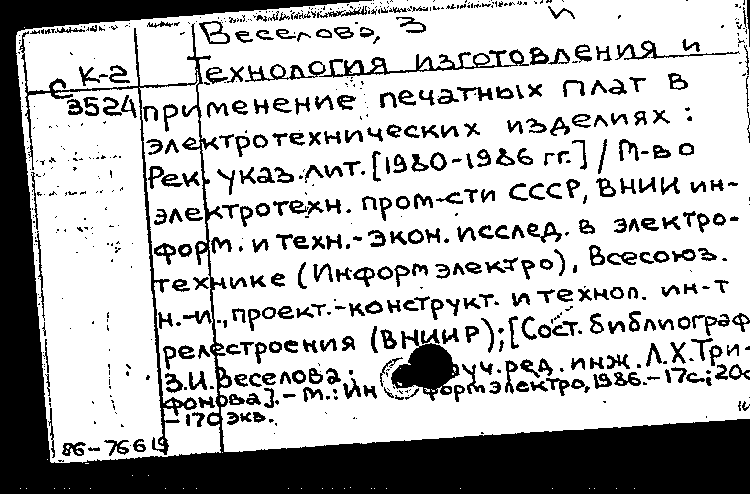 Веселова, З И
Технология изготовления и
с К-2
3524
применение печатных плат в
электротехнических изделиях :
Рек. указ. лит. [1980-1986 гг.] / М-во
электротехн. пром-сти СССР, ВНИИ ин-
форм. и техн.-экон. исслед. в электро-
технике (Информэлектро), Всесоюз.
н.-и., проект.-конструкт. и технол. ин-т
релестроения (ВНИИР); [Сост. библиограф
З.И. Веселова; уч. ред. инж. Л.Х. Три-
фонова]. - М.: Информэлектро, 1986. - 17с.; 20с
- 170 экз.
86-76619